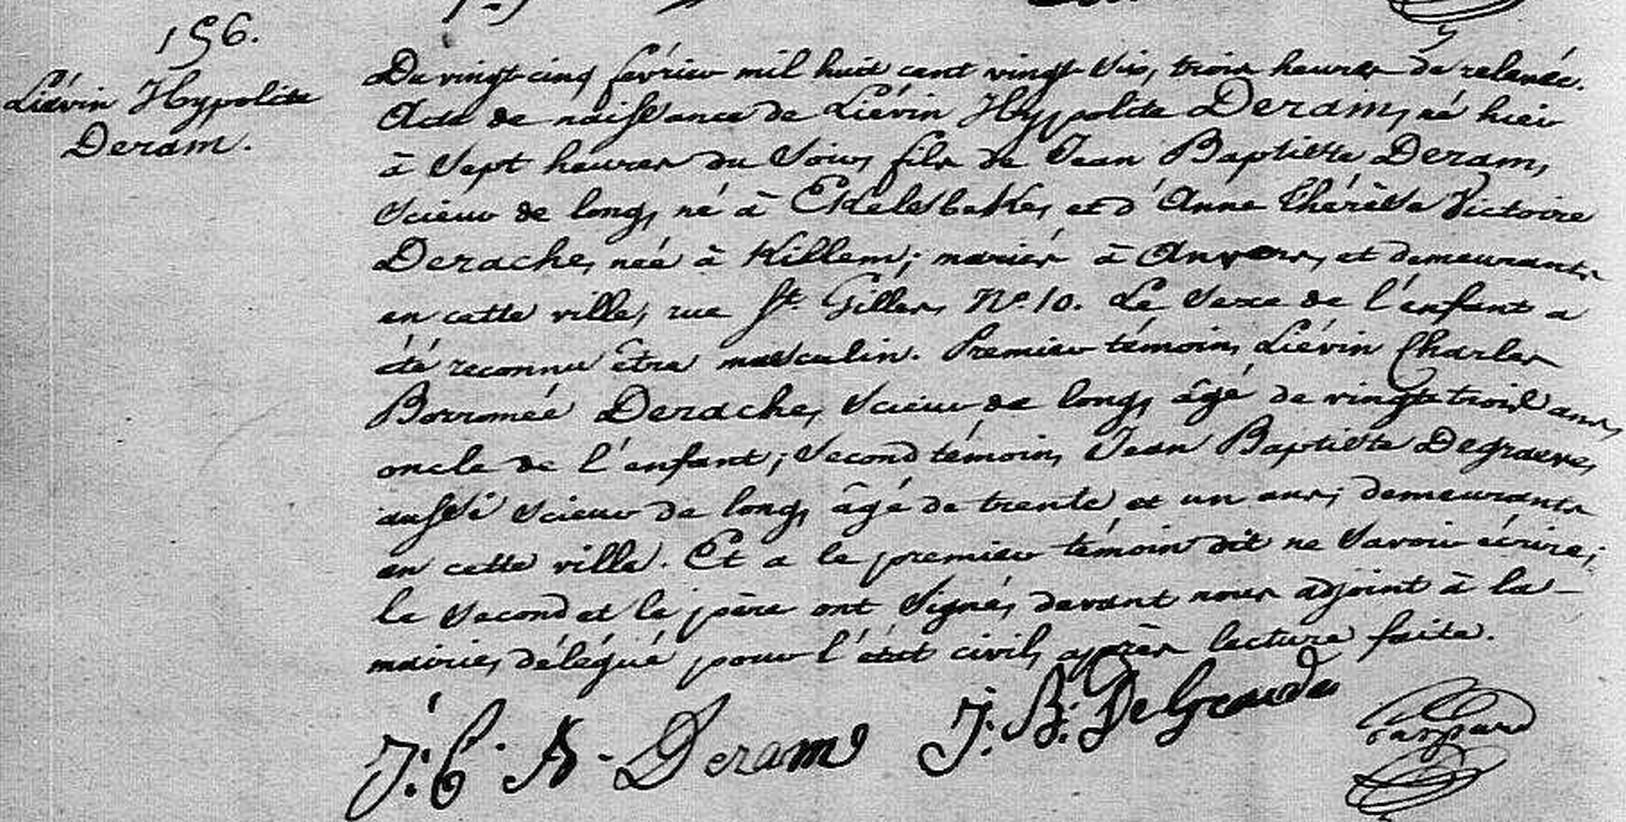 156.
Liévin Hypolite
Deram.
Du vingt cinq février mil huit cent vingt six, trois heures de relevée.
Acte de naissance de Liévin Hyppolite Deram, né hier
à sept heures du soir, fils de Jean Baptiste Deram,
scieur de long, né à Ekelsbeke, et d'Anne Thérèse Victoire
Derache, née à Killem; mariés à Anvers, et demeurants
en cette ville, rue St. Gilles, No. 10. Le sexe de l'enfant a
été reconnu être masculin. Premier témoin, Liévin Charles
Borromée Derache, scieur de long, âgé de vingt trois ans,
oncle de l'enfant; second témoin, Jean Baptiste Degraeve,
aussi scieur de long, âgé de trente et un ans; demeurants
en cette ville. Et a le premier témoin dit ne savoir écrire;
le second et le père ont signé, devant nous adjoint à la
mairie, délégué pour l'état civil, après lecture faite.
J. B. Deram J: B: De